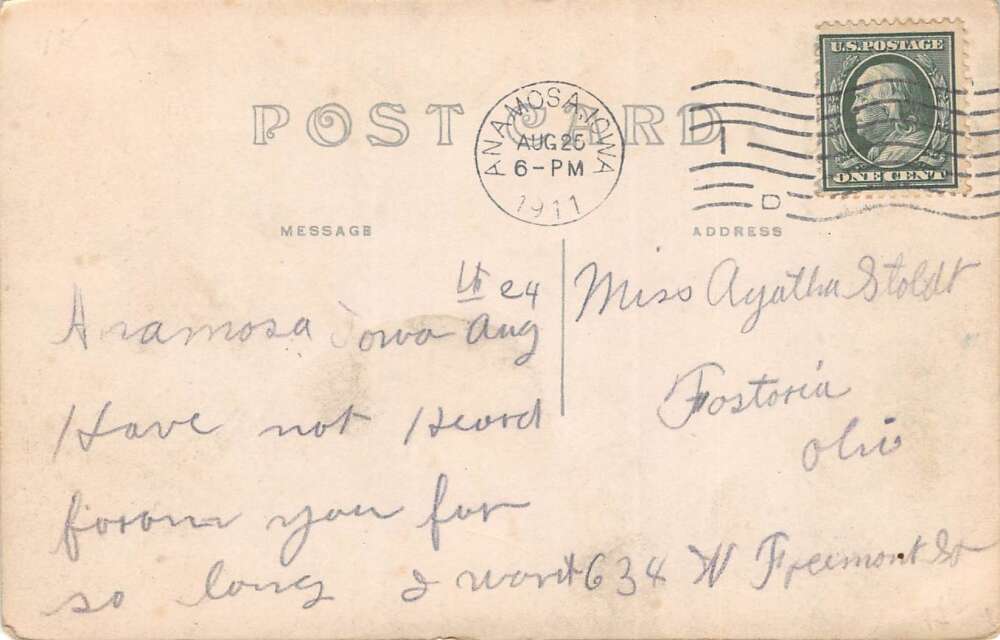 POST CARD
ANAMOSA, IOWA
AUG 25
6-PM
1911
1
D
U.S. POSTAGE
ONE CENT
MESSAGE
th 24
Anamosa Iowa Aug
Have not Heard
forom you for
so long I want
ADDRESS
Miss Agatha Stoldt
Fostoria
Ohio
634 W Freemont St